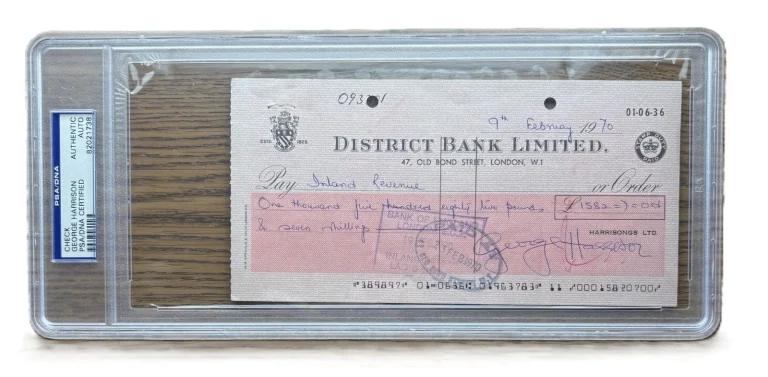 PSA/DNA
CHECK
GEORGE HARRISON
PSA/DNA CERTIFIED
AUTHENTIC
AUTO
82021738
9th February 1970
01-06-36
ESTD. 1829
DISTRICT BANK LIMITED.
47, OLD BOND STREET, LONDON, W.1
STAMP DUTY PAID
Pay Inland Revenue or Order
One thousand five hundred eighty two pounds £1582=7=00
& seven shillings
HARRISONGS LTD.
BANK OF
George Harrison
FEB 1970
INLAND
⑈389897⑈ 01⑉0636⑆ 01963783⑈ 11 ⑇0001582070 0⑇